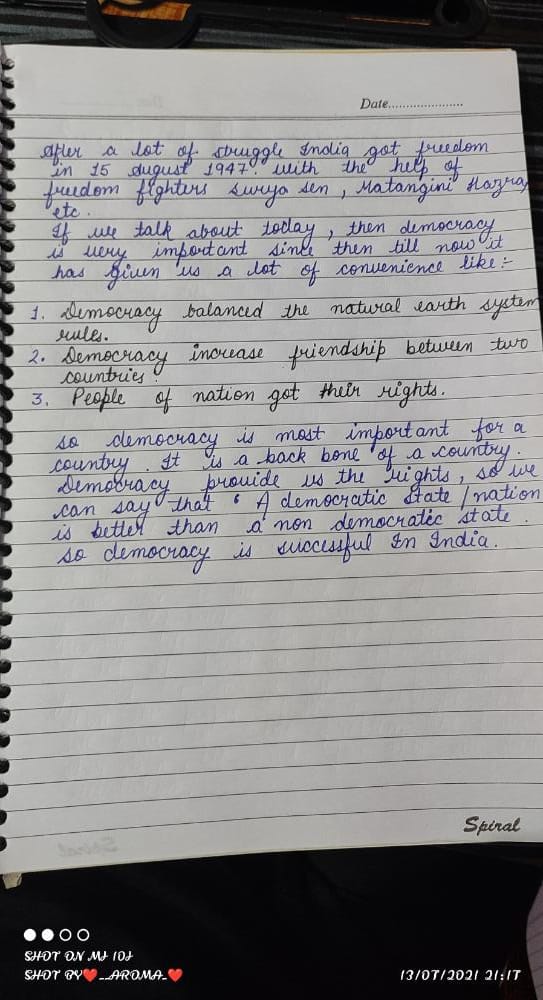 Date.....................
After a lot of struggle India got freedom
in 15 August 1947. with the help of
freedom fighters Surya sen, Matangini Hazra,
etc.
If we talk about today, then democracy
is very important since then till now it
has given us a lot of convenience like:-
1. Democracy balanced the natural earth system
rules.
2. Democracy increase friendship between two
countries.
3. People of nation got their rights.
so democracy is most important for a
country. It is a back bone of a country.
Democracy provide us the rights, so we
can say that " A democratic state / nation
is better than a non democratic state.
so democracy is successful In India.
Spiral
SHOT ON MI 10I
SHOT BY❤️_AROMA_❤️
13/07/2021 21:17